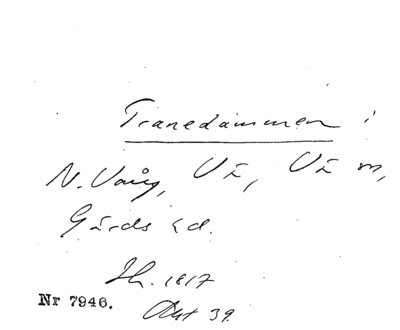 Tranedammen i
N. Vång, Vä, Vä m,
Gärds hd.
Sk. 1817
Nr 7946.
Akt 39.